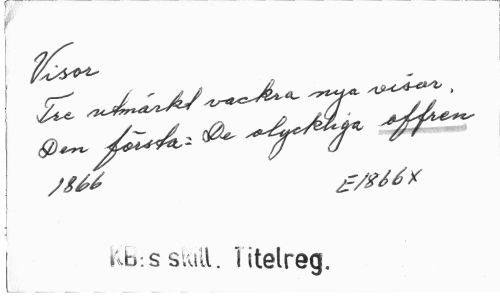 Visor
Tre utmärkt vackra nya visor.
Den första: De olyckliga offren
1866 E1866x
KB:s skill. Titelreg.